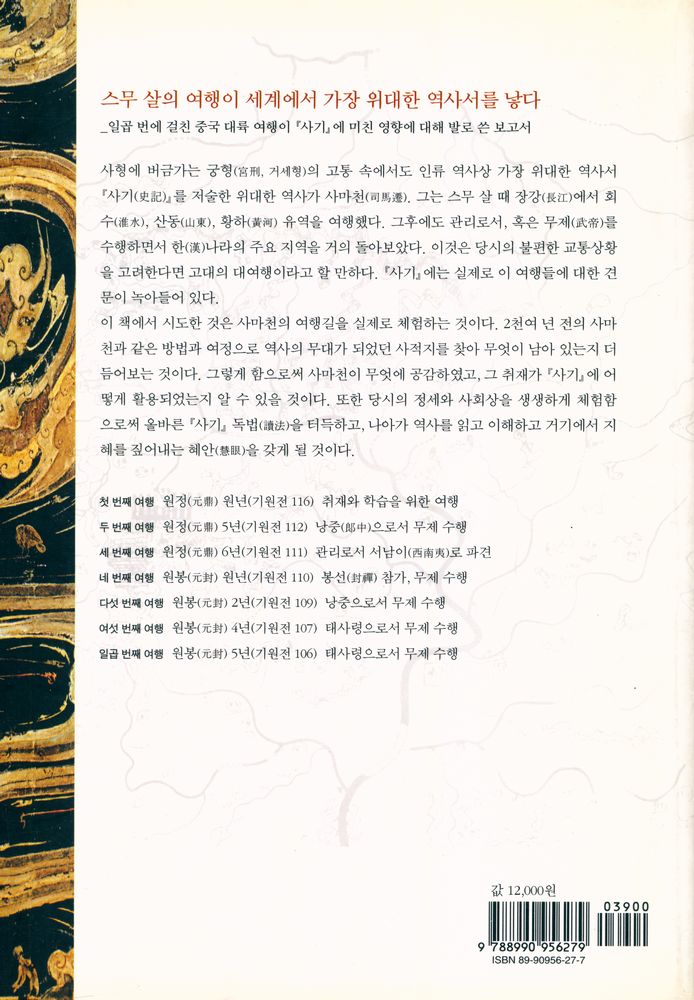 스무 살의 여행이 세계에서 가장 위대한 역사서를 낳다
_일곱 번에 걸친 중국 대륙 여행이 『사기』에 미친 영향에 대해 발로 쓴 보고서
사형에 버금가는 궁형(宮刑, 거세형)의 고통 속에서도 인류 역사상 가장 위대한 역사서
『사기(史記)』를 저술한 위대한 역사가 사마천(司馬遷). 그는 스무 살 때 장강(長江)에서 회
수(淮水), 산동(山東), 황하(黃河) 유역을 여행했다. 그후에도 관리로서, 혹은 무제(武帝)를
수행하면서 한(漢)나라의 주요 지역을 거의 돌아보았다. 이것은 당시의 불편한 교통상황
을 고려한다면 고대의 대여행이라고 할 만하다. 『사기』에는 실제로 이 여행들에 대한 견
문이 녹아들어 있다.
이 책에서 시도한 것은 사마천의 여행길을 실제로 체험하는 것이다. 2천여 년 전의 사마
천과 같은 방법과 여정으로 역사의 무대가 되었던 사적지를 찾아 무엇이 남아 있는지 더
듬어보는 것이다. 그렇게 함으로써 사마천이 무엇에 공감하였고, 그 취재가 『사기』에 어
떻게 활용되었는지 알 수 있을 것이다. 또한 당시의 정세와 사회상을 생생하게 체험함
으로써 올바른 『사기』 독법(讀法)을 터득하고, 나아가 역사를 읽고 이해하고 거기에서 지
혜를 짚어내는 혜안(慧眼)을 갖게 될 것이다.
첫 번째 여행 원정(元鼎) 원년(기원전 116) 취재와 학습을 위한 여행
두 번째 여행 원정(元鼎) 5년(기원전 112) 낭중(郎中)으로서 무제 수행
세 번째 여행 원정(元鼎) 6년(기원전 111) 관리로서 서남이(西南夷)로 파견
네 번째 여행 원봉(元封) 원년(기원전 110) 봉선(封禪) 참가, 무제 수행
다섯 번째 여행 원봉(元封) 2년(기원전 109) 낭중으로서 무제 수행
여섯 번째 여행 원봉(元封) 4년(기원전 107) 태사령으로서 무제 수행
일곱 번째 여행 원봉(元封) 5년(기원전 106) 태사령으로서 무제 수행
값 12,000원
03900
9 788990 956279
ISBN 89-90956-27-7